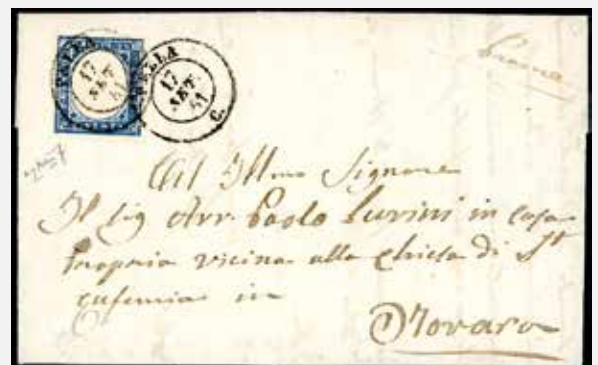 17
SET.
61
C.
17
SET.
61
All Illmo Signore
Il Sig Avv. Paolo Lurini in casa
propria vicina alla chiesa di St
eufemia in
Novara